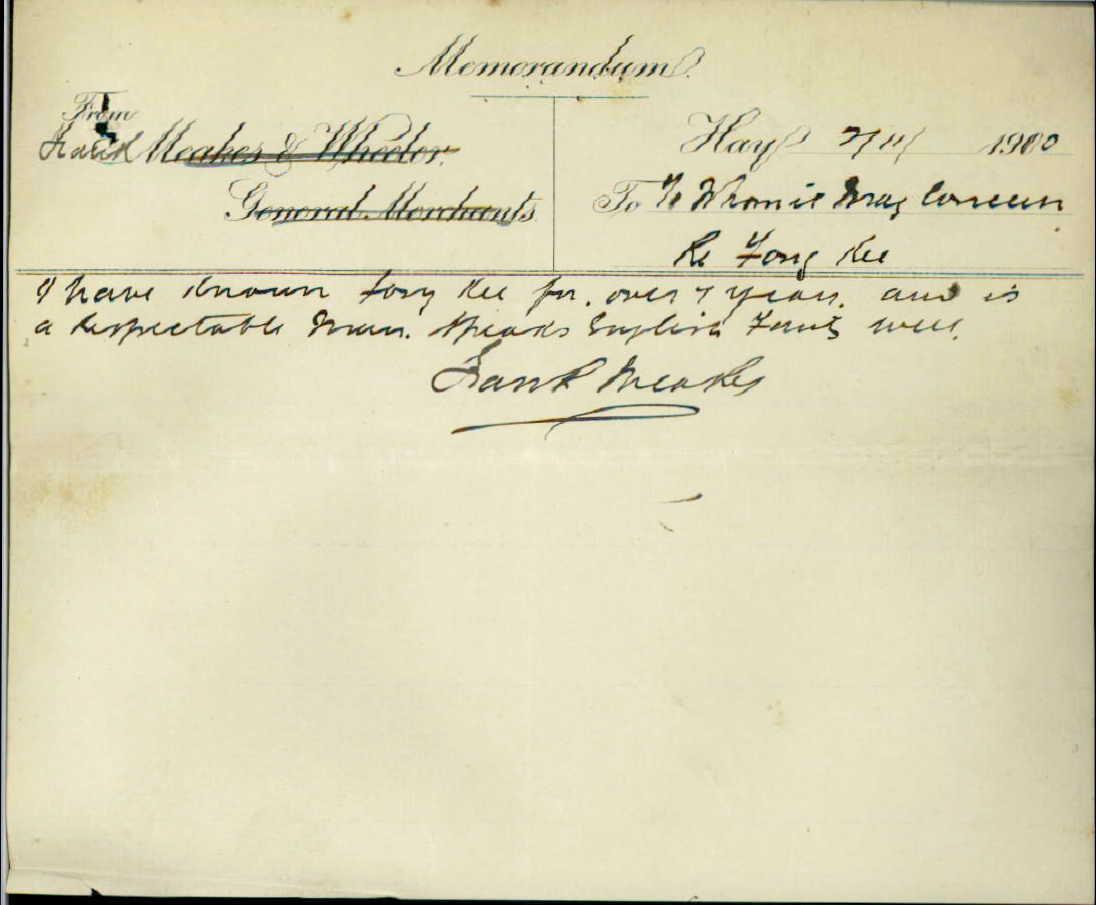 Memorandum
From
Frank Meakes & Wheeler.
General Merchants
Hay 1900
To To Whom it May Concern
Re Fong Kee
I have known Fong Kee for. over 7 years. and is
a Respectable Man. Speaks English Fairly well.
Frank Meakes